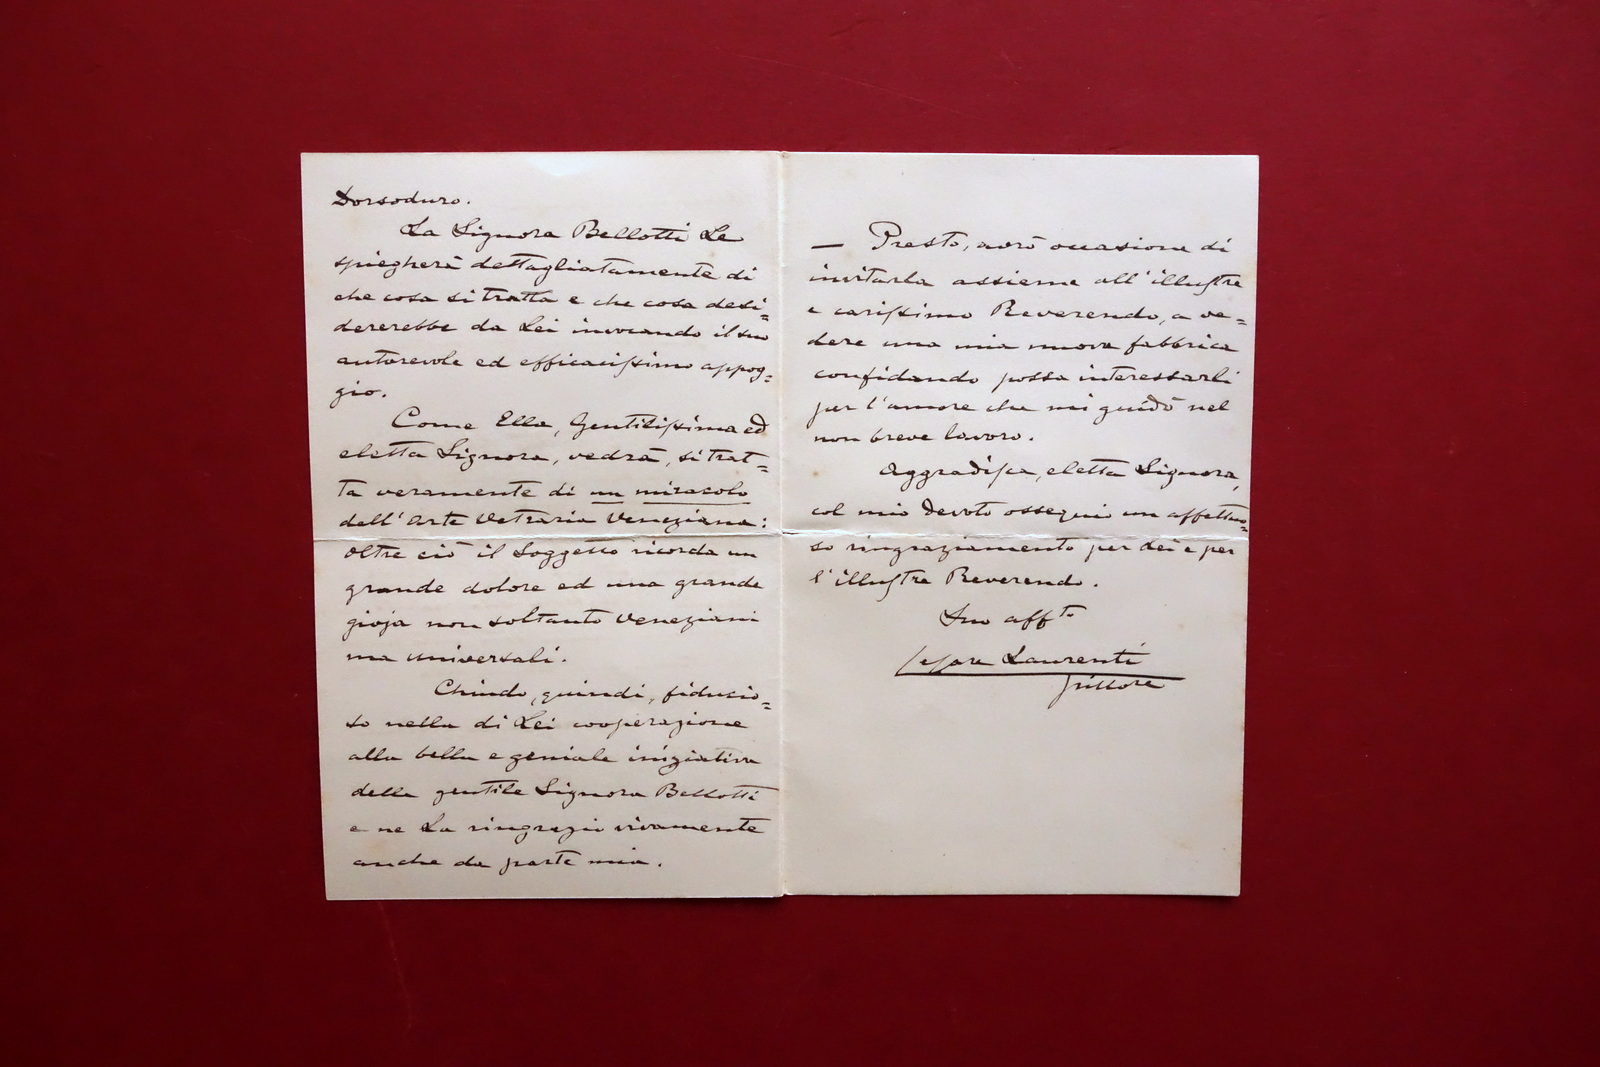 Dorsoduro.
La Signora Bellotti Le
spiegherà dettagliatamente di
che cosa si tratta e che cosa desi=
dererebbe da Lei invocando il suo
autorevole ed efficacissimo appog=
gio.
Come Ella, Gentilissima ed
eletta Signora, vedrà, si trat=
ta veramente di un miracolo
dell'Arte Vetraria Veneziana:
oltre ciò il Soggetto ricorda un
grande dolore ed una grande
gioja non soltanto Veneziani
ma universali.
Chiudo, quindi, fiducio=
so nella di Lei cooperazione
alla bella e geniale iniziativa
della gentile Signora Bellotti
e ne La ringrazio vivamente
anche da parte mia.
— Presto, avrò occasione di
invitarla assieme all'illustre
e carissimo Reverendo, a ve=
dere una mia nuova fabbrica
confidando possa interessarli
per l'amore che mi guidò nel
non breve lavoro.
Aggradisca, eletta Signora,
col mio devoto ossequio un affettuo=
so ringraziamento per Lei e per
l'illustre Reverendo.
Suo affto
Cesare Laurenti
pittore